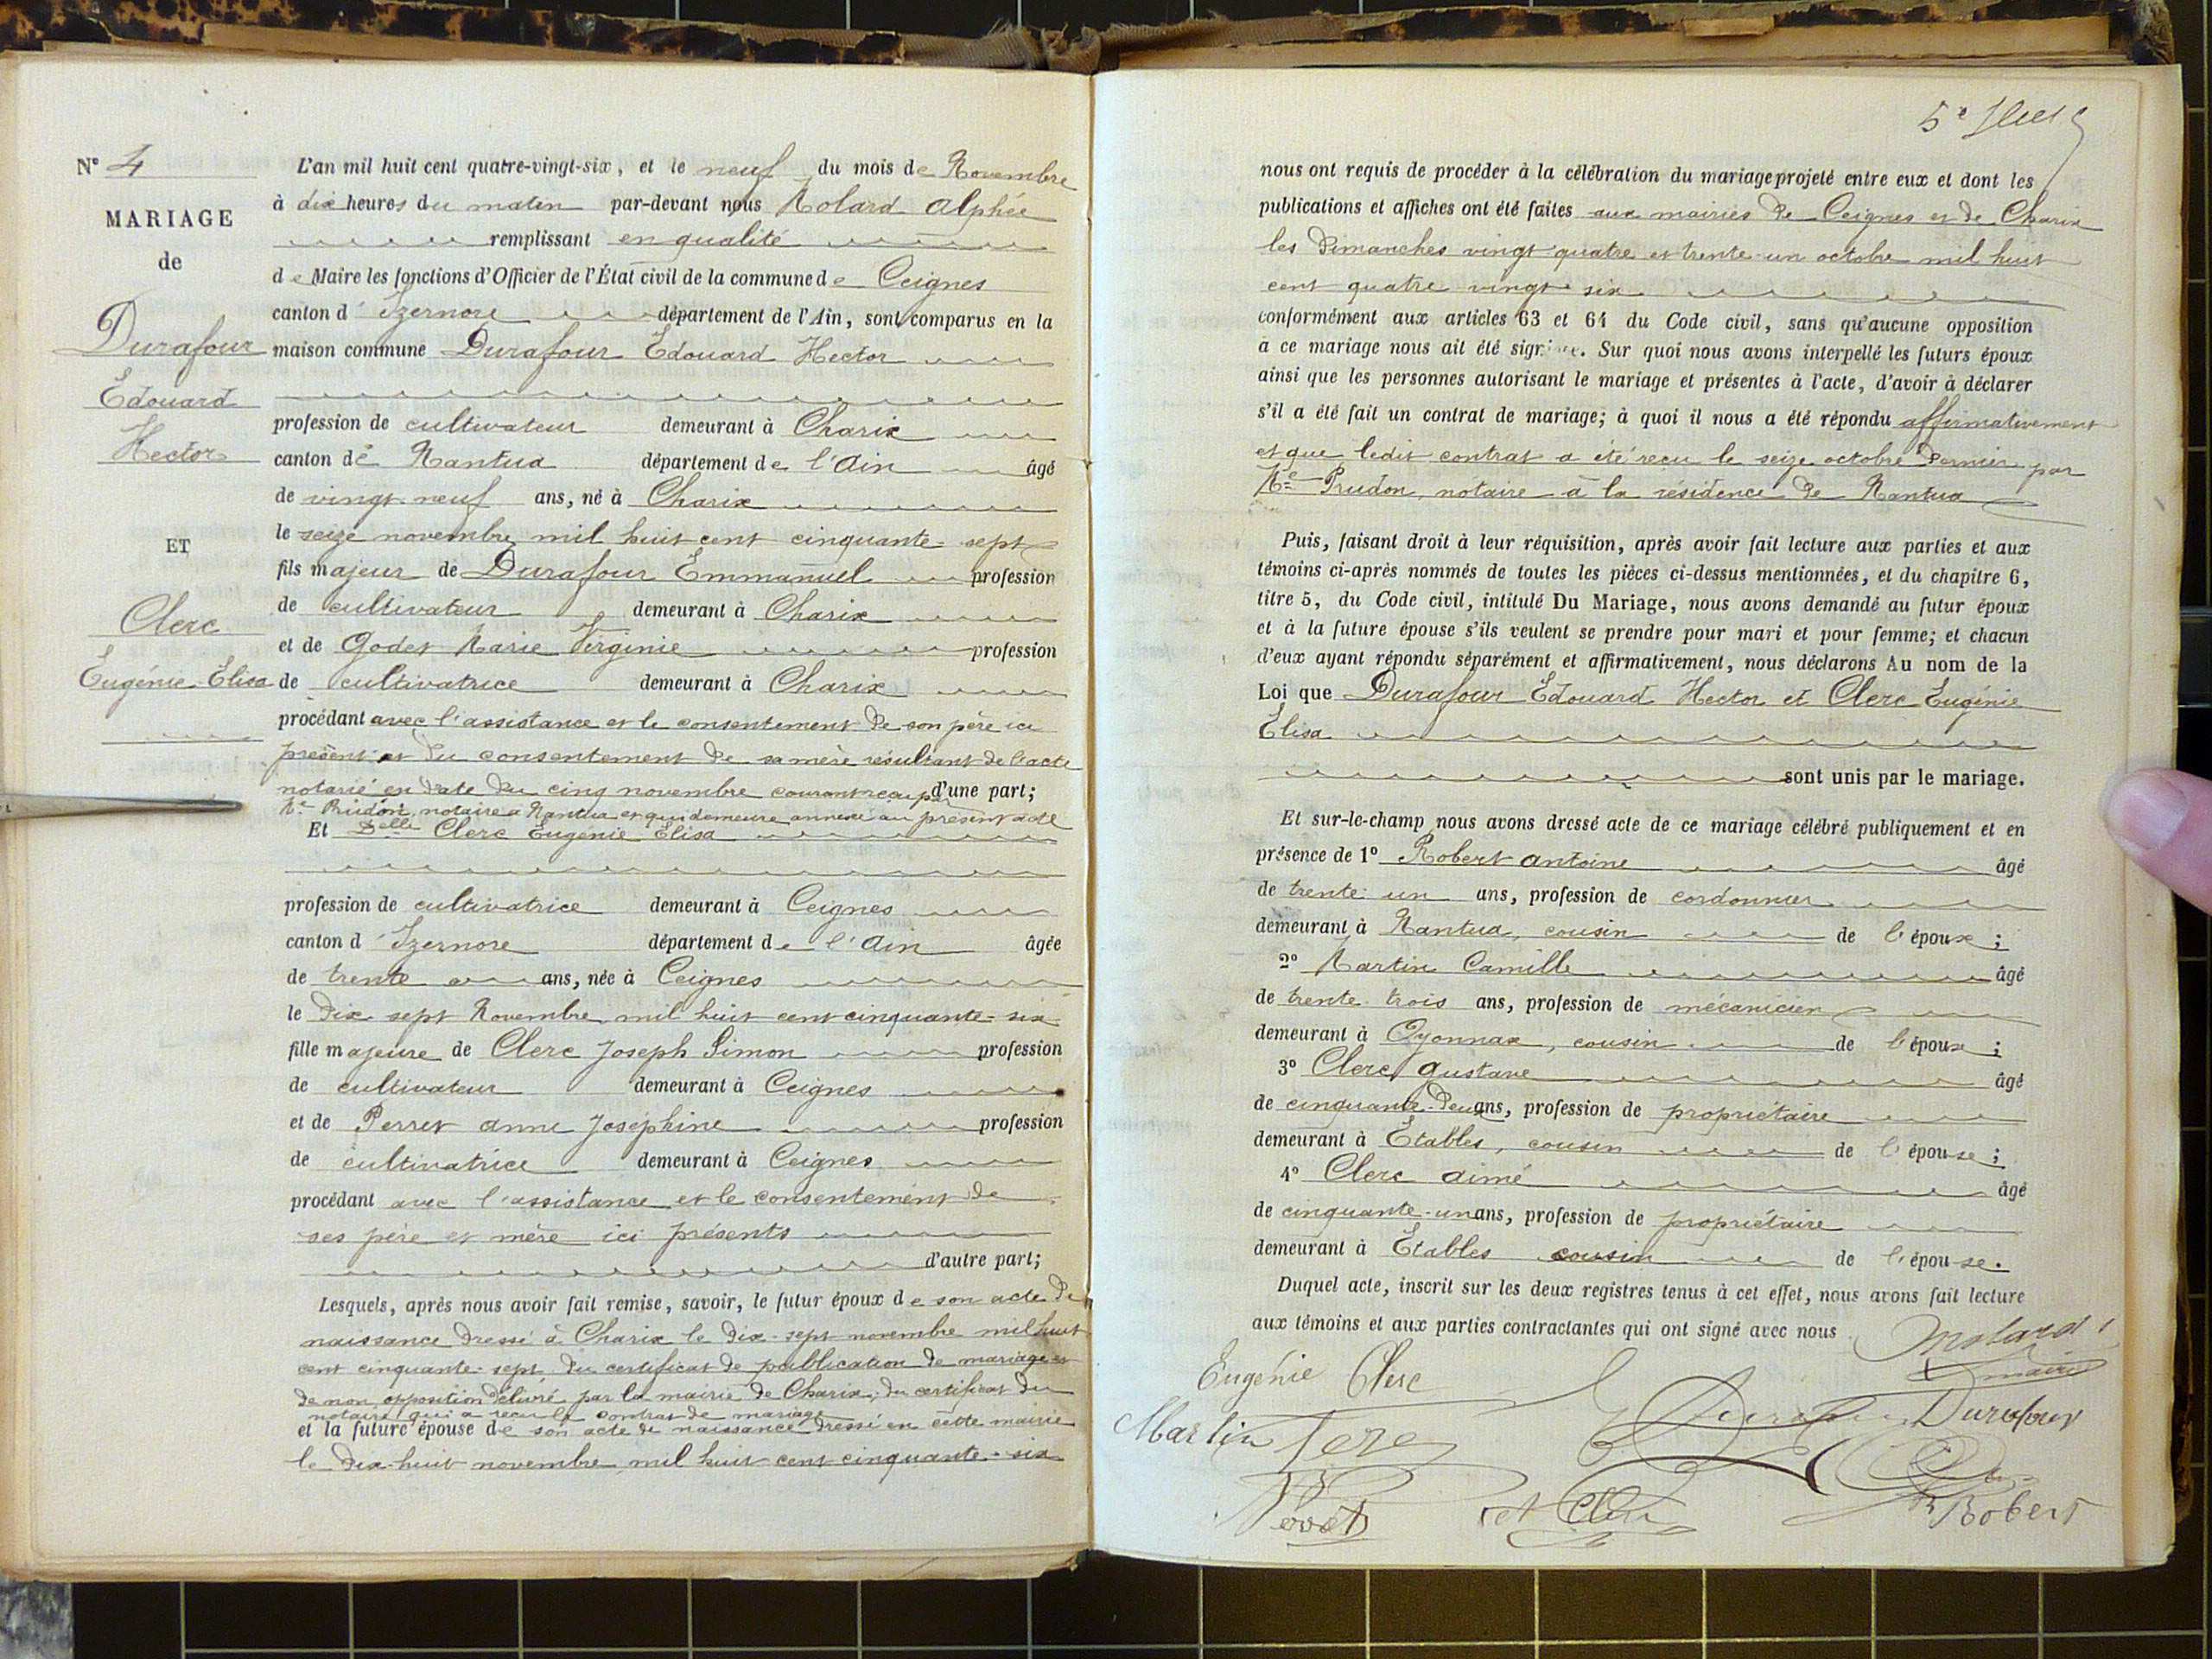 N° 4
MARIAGE
de
Durafour
Edouard
Hector
ET
Clerc
Eugénie Elisa
L'an mil huit cent quatre-vingt-six, et le neuf du mois de Novembre
à dix heures du matin par-devant nous Molard Alphée
remplissant en qualité
de Maire les fonctions d'Officier de l'État civil de la commune de Ceignes
canton d'Izernore département de l'Ain, sont comparus en la
maison commune Durafour Edouard Hector
profession de cultivateur demeurant à Charix
canton de Nantua département de l'Ain âgé
de vingt-neuf ans, né à Charix
le seize novembre mil huit cent cinquante-sept
fils majeur de Durafour Emmanuel profession
de cultivateur demeurant à Charix
et de Godet Marie Virginie profession
de cultivatrice demeurant à Charix
procédant avec l'assistance et le consentement de son père ici
présent et du consentement de sa mère résultant de l'acte
notarié en date du cinq novembre courant reçu par d'une part;
Me Prudon, notaire à Nantua et qui demeure annexé au présent acte
Et Delle Clerc Eugénie Elisa
profession de cultivatrice demeurant à Ceignes
canton d'Izernore département de l'Ain âgée
de trente ans, née à Ceignes
le dix sept Novembre mil huit cent cinquante-six
fille majeure de Clerc Joseph Simon profession
de cultivateur demeurant à Ceignes
et de Perret Anne Joséphine profession
de cultivatrice demeurant à Ceignes
procédant avec l'assistance et le consentement de
ses père et mère ici présents
d'autre part;
Lesquels, après nous avoir fait remise, savoir, le futur époux de son acte de
naissance dressé à Charix le dix-sept novembre mil huit
cent cinquante-sept du certificat de publication de mariage et
de non opposition délivré par la mairie de Charix; du certificat du
notaire qui a reçu le contrat de mariage
et la future épouse de son acte de naissance dressé en cette mairie
le dix-huit novembre mil huit cent cinquante-six
nous ont requis de procéder à la célébration du mariage projeté entre eux et dont les
publications et affiches ont été faites aux mairies de Ceignes et de Charix
les dimanches vingt quatre et trente-un octobre mil huit
cent quatre vingt six
conformément aux articles 63 et 64 du Code civil, sans qu'aucune opposition
à ce mariage nous ait été signifiée. Sur quoi nous avons interpellé les futurs époux
ainsi que les personnes autorisant le mariage et présentes à l'acte, d'avoir à déclarer
s'il a été fait un contrat de mariage; à quoi il nous a été répondu affirmativement
et que ledit contrat a été reçu le seize octobre dernier par
Me Prudon, notaire à la résidence de Nantua
Puis, faisant droit à leur réquisition, après avoir fait lecture aux parties et aux
témoins ci-après nommés de toutes les pièces ci-dessus mentionnées, et du chapitre 6,
titre 5, du Code civil, intitulé Du Mariage, nous avons demandé au futur époux
et à la future épouse s'ils veulent se prendre pour mari et pour femme; et chacun
d'eux ayant répondu séparément et affirmativement, nous déclarons Au nom de la
Loi que Durafour Edouard Hector et Clerc Eugénie
Elisa
sont unis par le mariage.
Et sur-le-champ nous avons dressé acte de ce mariage célébré publiquement et en
présence de 1° Robert Antoine âgé
de trente-un ans, profession de cordonnier
demeurant à Nantua, cousin de l'époux;
2° Martin Camille âgé
de trente-trois ans, profession de mécanicien
demeurant à Oyonnax, cousin de l'époux;
3° Clerc Gustave âgé
de cinquante-deux ans, profession de propriétaire
demeurant à Etables, cousin de l'épouse;
4° Clerc Aimé âgé
de cinquante-un ans, profession de propriétaire
demeurant à Etables cousin de l'épouse.
Duquel acte, inscrit sur les deux registres tenus à cet effet, nous avons fait lecture
aux témoins et aux parties contractantes qui ont signé avec nous
Molard
maire
Eugénie Clerc
Durafour
Martin
Clerc
Robert